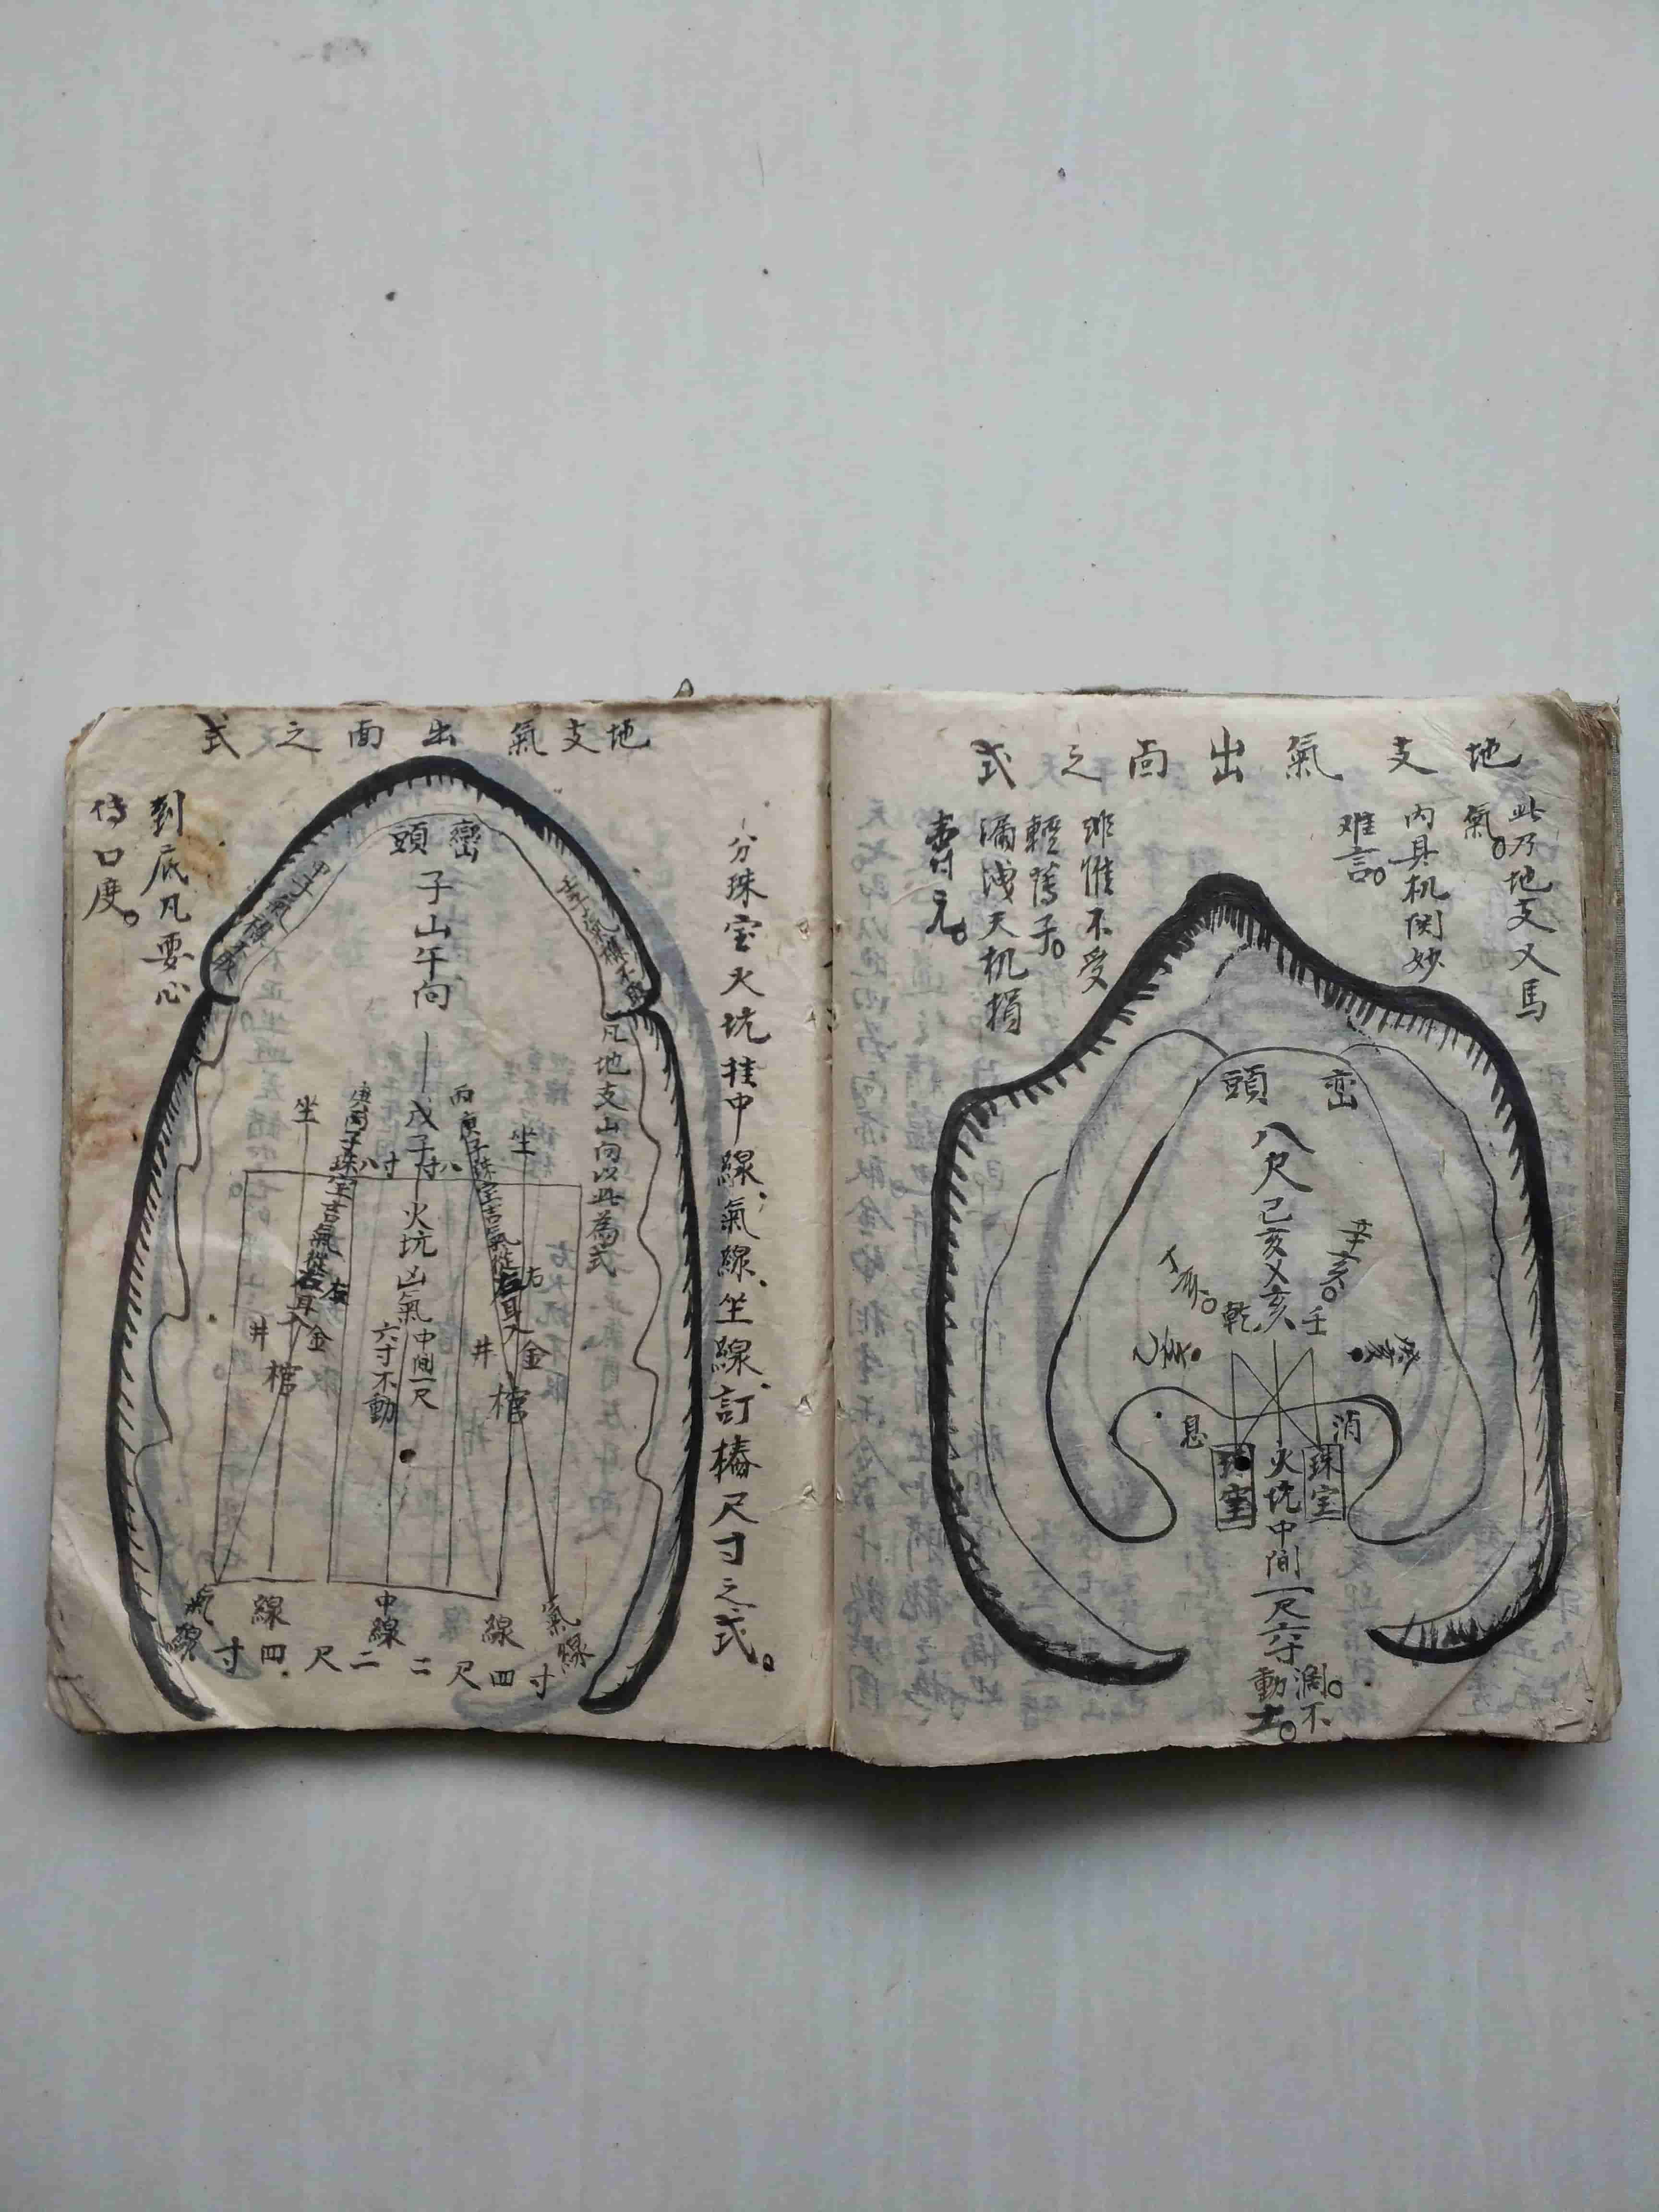 地支氣出面之式
此乃地支又馬
氣。
內具机関妙
难言。
不受
輕
漏洩天机損
壽元。
巒頭
八尺
己亥
辛亥。
乾亥壬
消
息
珠宝
火坑中间一尺六寸
珠宝
不
動土。
地支氣出面之式
分珠宝火坑挂中線氣線坐線訂樁尺寸之式。
巒頭
子山午向
凡地支山向以此為式
戊子
丙
庚子珠宝吉氣從右耳入
坐
坐
八寸
寸八
火坑凶氣中间一尺
六寸不動
金井
棺
金井
棺
氣線
線
中線
線
氣線
寸四尺二
二尺四寸
到底凡要心
傳口度。